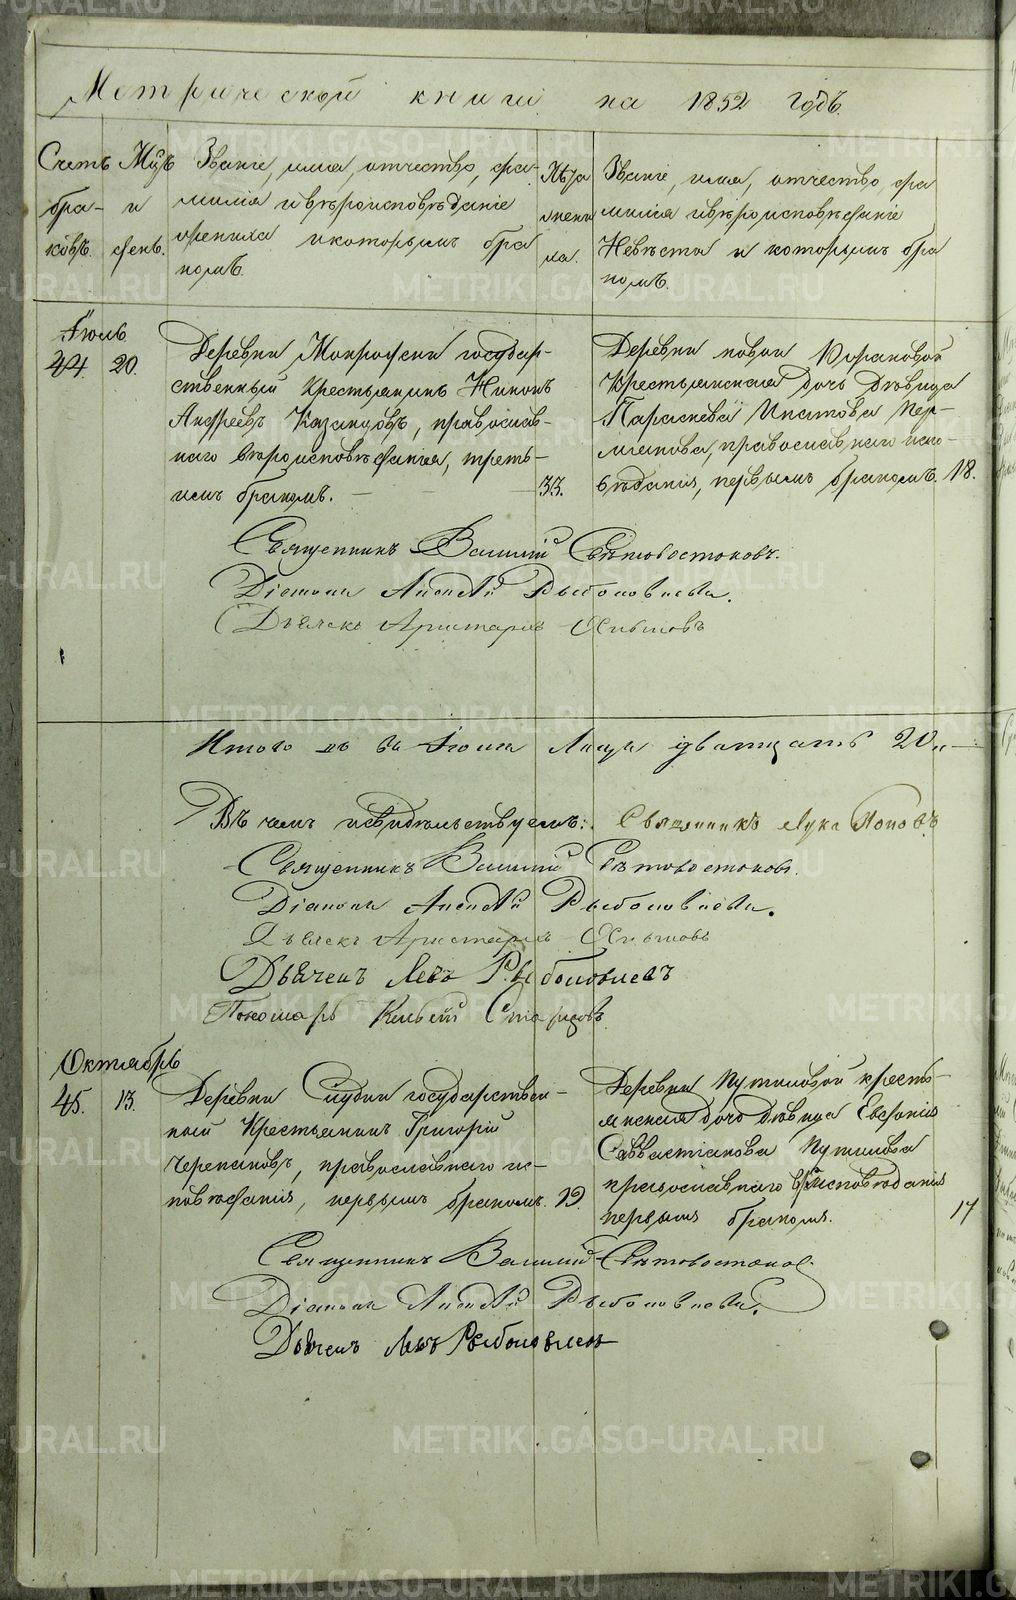 Метрической книги на 1852 годъ.
Счетъ браковъ.
Мѣсяцъ и день.
Званіе, имя, отчество, фамилія и вѣроисповѣданіе жениха и которымъ бракомъ.
Лѣта жениха.
Званіе, имя, отчество, фамилія и вѣроисповѣданіе Невѣсты и которымъ бракомъ.
Іюль
44. 20.
Деревни Мокро государ-
ственный Крестьянинъ Никонъ
Андреевъ Казанцовъ, православ-
наго вѣроисповѣданія, треть-
имъ бракомъ. — 33.
Деревни новой
Крестьянская дочь Дѣвица
Параскева Ипатова
православнаго испо-
вѣданія, первымъ бракомъ. 18.
Священникъ Василій Свѣтовостоковъ.
Діаконъ Алексѣй Рыболовлевъ.
Дьячекъ Аристархъ
Итого въ Іюлѣ двадцать 20.
Въ чемъ и свидѣтельствуемъ: Священникъ Лука Поповъ
Священникъ Василій Свѣтовостоковъ.
Діаконъ Алексѣй Рыболовлевъ.
Дьячекъ Аристархъ
Дьячекъ Левъ Рыболовлевъ
Пономарь Старцовъ
Октябрь
45. 13.
Деревни государствен-
ный Крестьянинъ Григорій
Черепановъ, православнаго ис-
повѣданія, первымъ бракомъ. 19.
Деревни Путиловой кресть-
янская дочь дѣвица Евфанія
Савастіанова Путилова
православнаго вѣроисповѣданія
первымъ бракомъ. 17
Священникъ Василій Свѣтовостоковъ.
Діаконъ Алексѣй Рыболовлевъ.
Дьячекъ Левъ Рыболовлевъ
METRIKI.GASO-URAL.RU